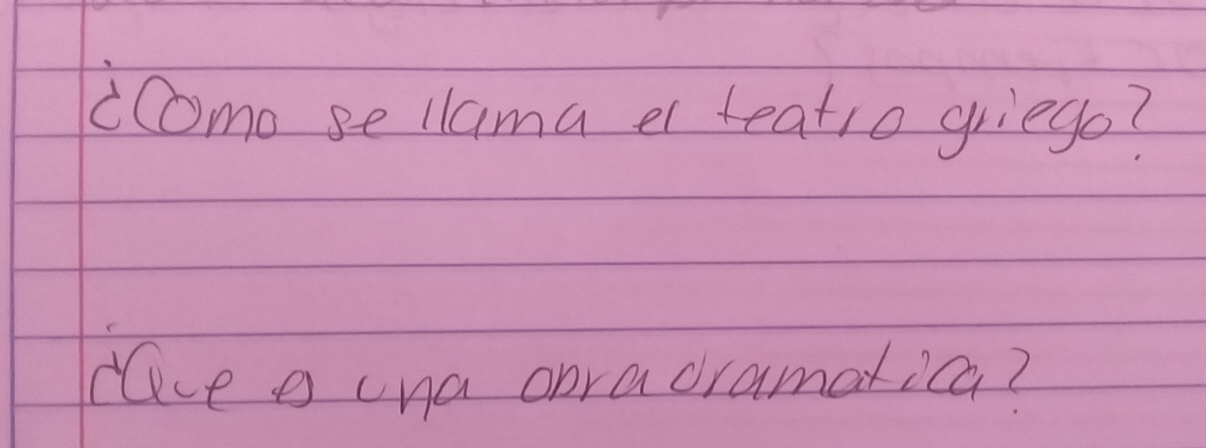 ¿Como se llama el teatro griego?
¿Que es una obra dramatica?